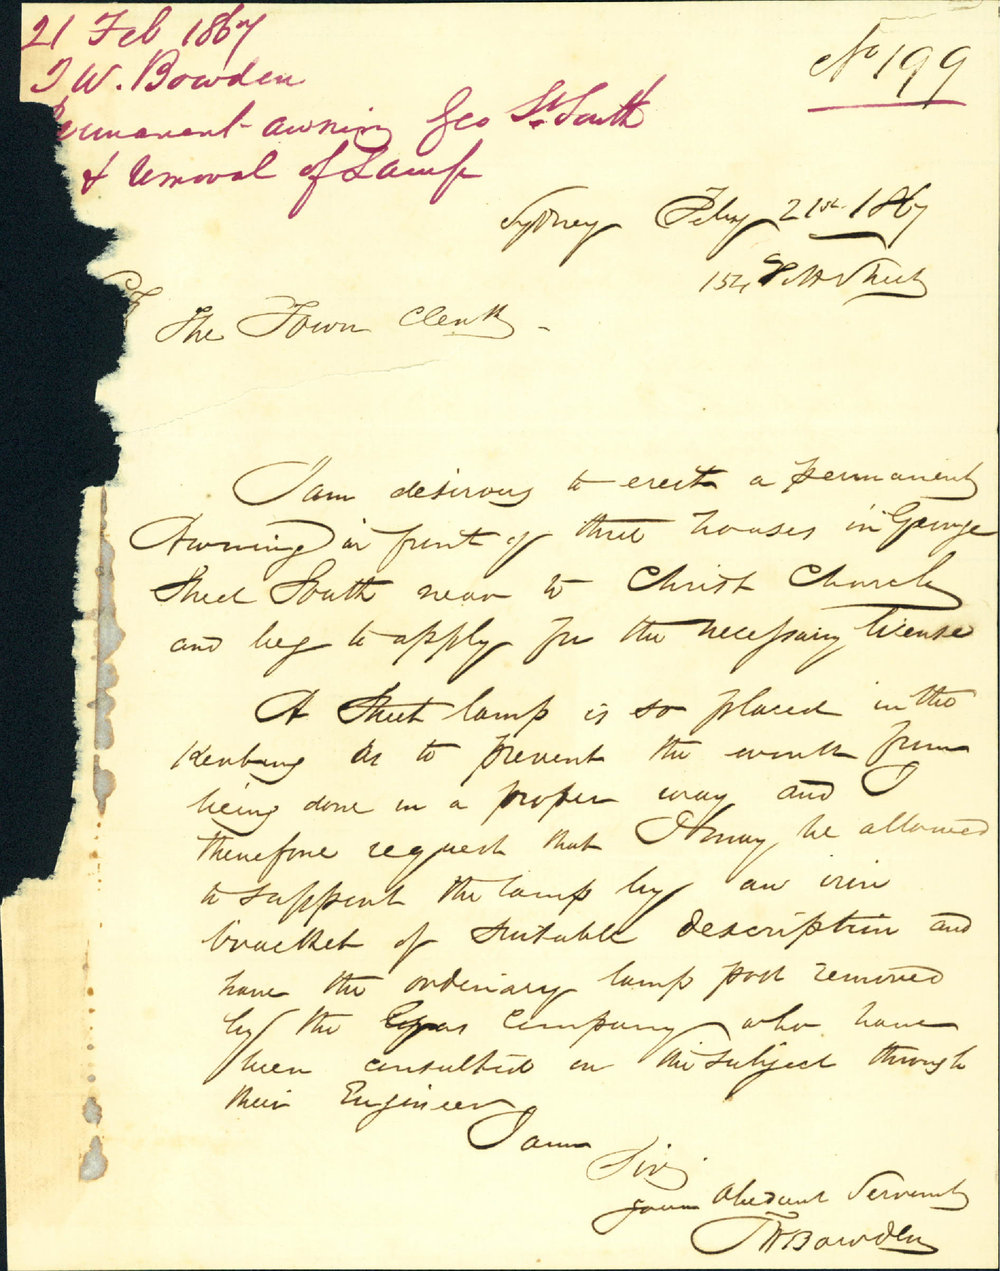 21 Feb 1867
T W. Bowden
Permanent awning Geo St South
& removal of Lamp
No 199
Sydney Feby 21st 1867
154 Pitt Street
The Town Clerk
I am desirous to erect a permanent
Awning in front of three houses in George
Street South near to Christ Church
and beg to apply for the necessary license
A Street lamp is so placed in the
Kerbing as to prevent the work from
being done in a proper way and I
therefore request that I may be allowed
to support the lamp by an iron
bracket of suitable description and
have the ordinary lamp post removed
by the Gas Company who have
been consulted on the subject through
their Engineer
I am
Sir
your Obedient Servent
TWBowden